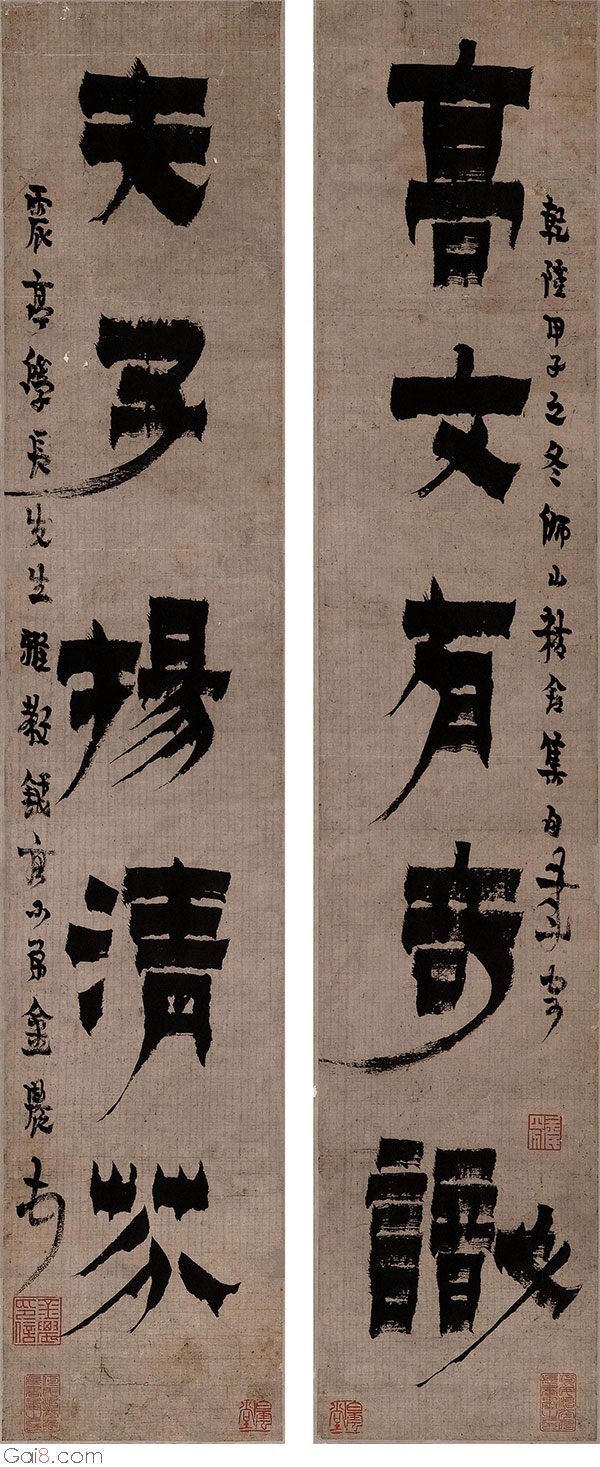 乾隆甲子之冬師山精舍集句
高文有奇識
夫子揚清芬
震亭學長先生雅教錢唐小弟金農書
金農印信
Gai8.com